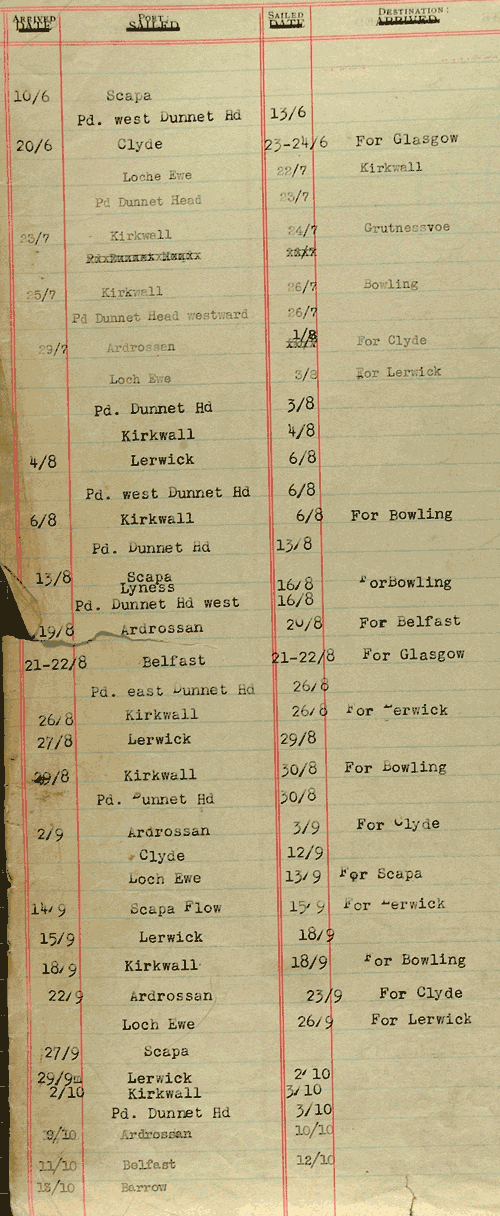 ARRIVED PORT. SAILED DESTINATION:
DATE SAILED DATE ARRIVED
10/6 Scapa
Pd. west Dunnet Hd 13/6
20/6 Clyde 23-24/6 For Glasgow
Loche Ewe 22/7 Kirkwall
Pd Dunnet Head 23/7
23/7 Kirkwall 24/7 Grutnessvoe
25/7 Kirkwall 26/7 Bowling
Pd Dunnet Head westward 26/7
29/7 Ardrossan 1/8 For Clyde
Loch Ewe 3/8 For Lerwick
Pd. Dunnet Hd 3/8
Kirkwall 4/8
4/8 Lerwick 6/8
Pd. west Dunnet Hd 6/8
6/8 Kirkwall 6/8 For Bowling
Pd. Dunnet Hd 13/8
13/8 Scapa
Lyness 16/8 ForBowling
Pd. Dunnet Hd west 16/8
19/8 Ardrossan 20/8 For Belfast
21-22/8 Belfast 21-22/8 For Glasgow
Pd. east Dunnet Hd 26/8
26/8 Kirkwall 26/8 For Lerwick
27/8 Lerwick 29/8
29/8 Kirkwall 30/8 For Bowling
Pd. Dunnet Hd 30/8
2/9 Ardrossan 3/9 For Clyde
Clyde 12/9
Loch Ewe 13/9 For Scapa
14/9 Scapa Flow 15/9 For Lerwick
15/9 Lerwick 18/9
18/9 Kirkwall 18/9 For Bowling
22/9 Ardrossan 23/9 For Clyde
Loch Ewe 26/9 For Lerwick
27/9 Scapa
29/9 Lerwick 2/10
2/10 Kirkwall 3/10
Pd. Dunnet Hd 3/10
9/10 Ardrossan 10/10
11/10 Belfast 12/10
13/10 Barrow